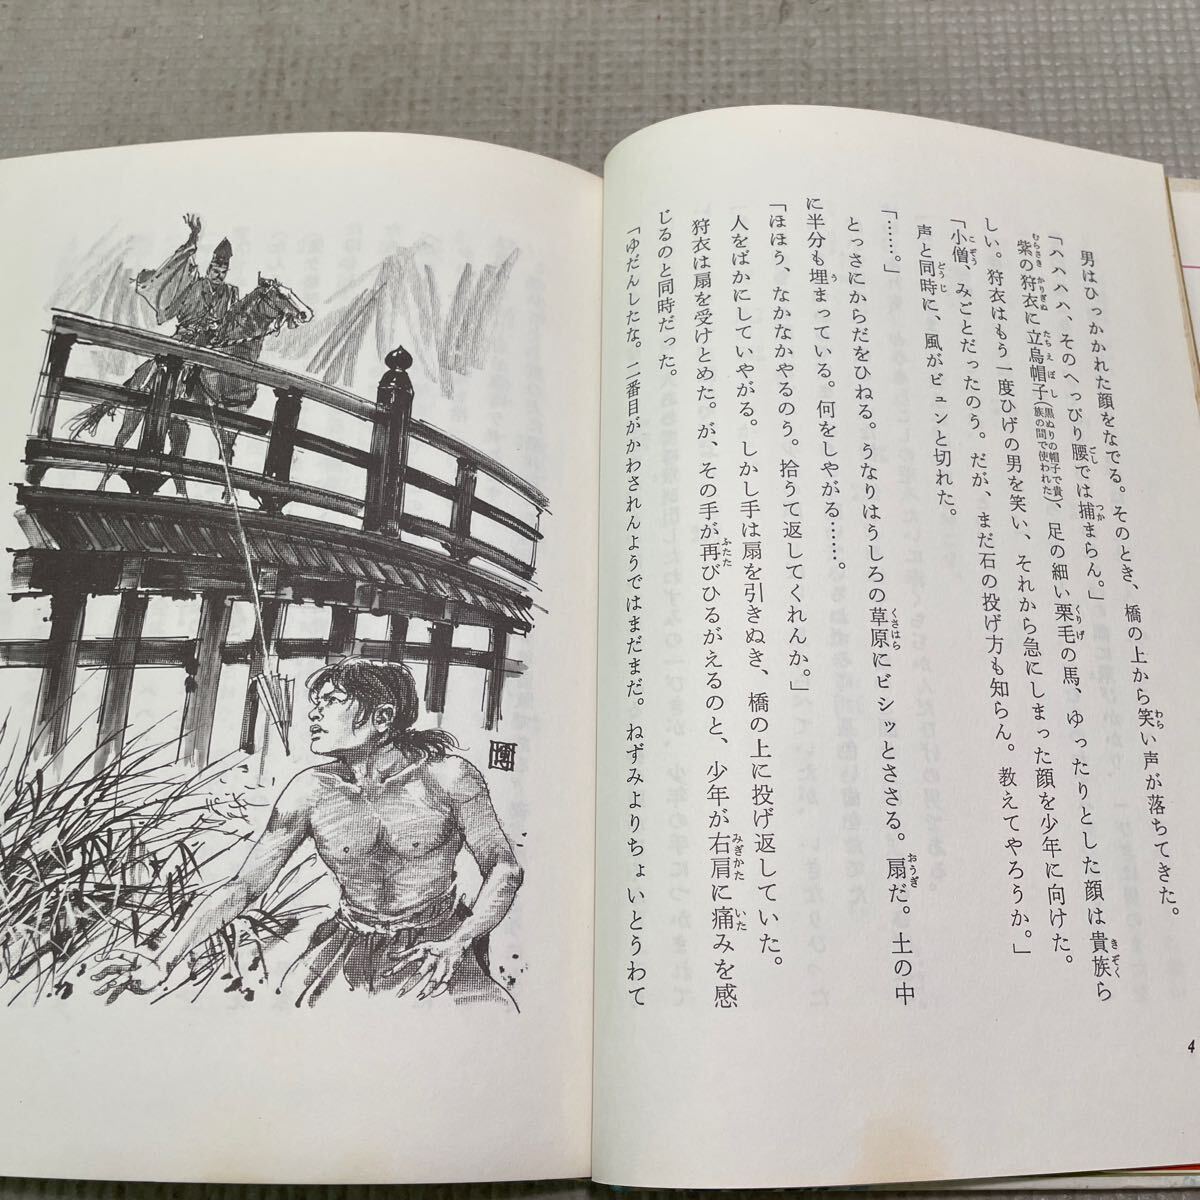 男はひっかかれた顔をなでる。そのとき、橋の上から笑い声が落ちてきた。
「ハハハハ、そのへっぴり腰では捕まらん。」
紫の狩衣に立烏帽子(黒ぬりの帽子で貴族の間で使われた)、足の細い栗毛の馬、ゆったりとした顔は貴族ら
しい。狩衣はもう一度ひげの男を笑い、それから急にしまった顔を少年に向けた。
「小僧、みごとだったのう。だが、まだ石の投げ方も知らん。教えてやろうか。」
声と同時に、風がビュンと切れた。
「……。」
とっさにからだをひねる。うなりはうしろの草原にビシッとささる。扇だ。土の中
に半分も埋まっている。何をしやがる……。
「ほほう、なかなかやるのう。拾うて返してくれんか。」
人をばかにしていやがる。しかし手は扇を引きぬき、橋の上に投げ返していた。
狩衣は扇を受けとめた。が、その手が再びひるがえるのと、少年が右肩に痛みを感
じるのと同時だった。
「ゆだんしたな。二番目がかわされんようではまだまだ。ねずみよりちょいとうわて
4